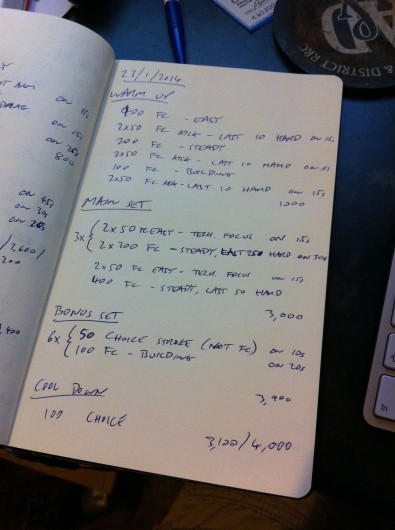 ON 15s
ON 15s
ON 20s
800
ON 45s
ON 30s
ON 20s
/2600/
200
,400
& DISTRICT RRC
23/1/2014
WARM UP
400 FC - EASY
2x50 FC KICK - LAST 10 HARD ON 15s
200 FC - STEADY
2x50 FC KICK - LAST 10 HARD ON 15s
100 FC - BUILDING
2x50 FC KICK - LAST 10 HARD ON 15s
1000
MAIN SET
3x { 2x50 FC EASY - TECH. FOCUS ON 15s
2x200 FC - STEADY, LAST 50 HARD ON 30s
2x50 FC EASY - TECH. FOCUS ON 15s
400 FC - STEADY, LAST 50 HARD
3,000
BONUS SET
6x { 50 CHOICE STROKE (NOT FC) ON 10s
100 FC - BUILDING ON 20s
3,900
COOL DOWN
100 CHOICE
3,100/4,000